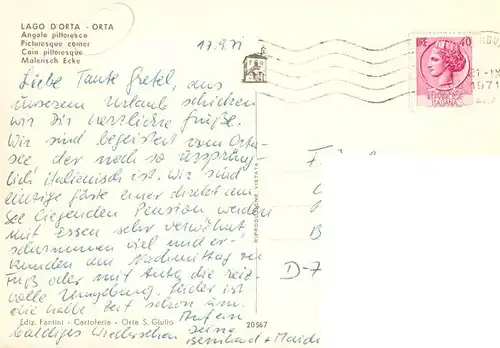 LAGO D'ORTA - ORTA
Angolo pittoresco
Picturesque corner
Coin pittoresque
Malerisch Ecke
17.9.71
LIRE 40
21-IX
1971
ITALIANA
Liebe Tante Gretel, aus
unserem Urlaub schicken
wir Dir herzliche Grüße.
Wir sind begeistert vom Orta-
see, der noch so ursprüng-
lich italienisch ist. Wir sind
einzige Gäste einer direkt am
See liegenden Pension, werden
mit Essen sehr verwöhnt,
schwimmen viel und er-
kunden am Nachmittag zu
Fuß oder mit Auto die reiz-
volle Umgebung. Leider ist
die halbe Zeit schon um.
Auf ein
baldiges Wiedersehen Deine
Bernhard + Maidi
D-7
B
RIPRODUZIONE VIETATA
Ediz. Fantini - Cartoleria - Orta S. Giulio
20567